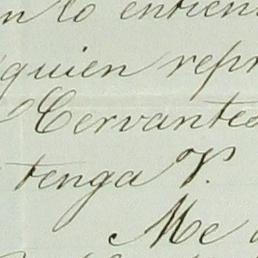 n lo entien
quien repr
Cervantes
tenga V.
Me